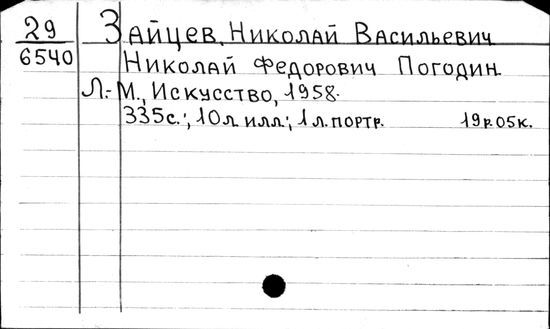 29 Зайцев, Николай Васильевич
6540 Николай Федорович Погодин.
Л.-М., Искусство, 1958.
335с.; 10л. илл.; 1л. портр. 19р.05к.